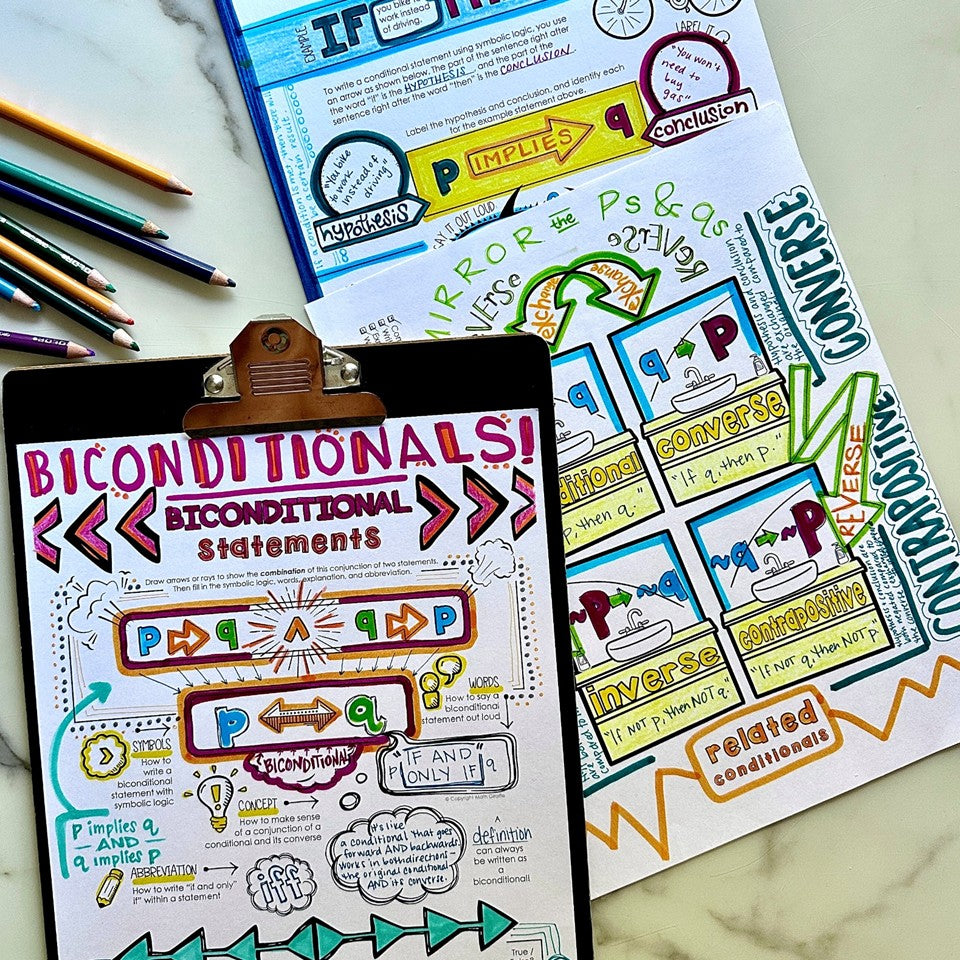 EXAMPLE
IF
you bike to
work instead
of driving.
LABEL IT
To write a conditional statement using symbolic logic, you use
an arrow as shown below. The part of the sentence right after
the word "if" is the HYPOTHESIS, and the part of the
sentence right after the word "then" is the CONCLUSION.
Label the hypothesis and conclusion, and identify each
for the example statement above.
"You bike
to work
instead of
driving"
hypothesis
p IMPLIES q
"You won't
need to
buy
gas"
conclusion
SAY IT OUT LOUD
MIRROR the Ps & qs
REVERSE
exchange
exchange
q p
converse
"If q, then p."
q
p, then q."
~p ~q
inverse
"If NOT p, then NOT q."
~q ~p
contrapositive
"If NOT q, then NOT p."
CONVERSE
Hypothesis and conclusion
are exchanged compared to
the original
REVERSE
CONTRAPOSITIVE
related
conditionals
BICONDITIONALS!
BICONDITIONAL
Statements
Draw arrows or rays to show the combination of this conjunction of two statements.
Then fill in the symbolic logic, words, explanation, and abbreviation.
p ⇒ q ∧ q ⇒ p
p ⇔ q
BICONDITIONAL
WORDS
How to say a
biconditional
statement out loud
"IF AND"
p ONLY IF q
© Copyright Math Giraffe
SYMBOLS
How to
write a
biconditional
statement with
symbolic logic
CONCEPT
How to make sense
of a conjunction of a
conditional and its converse
p implies q
—AND—
q implies p
ABBREVIATION
How to write "if and only
if" within a statement
iff
it's like
a conditional that goes
forward AND backwards.
works in both directions—
the original conditional
AND its converse.
A
definition
can always
be written as
a biconditional!
True /